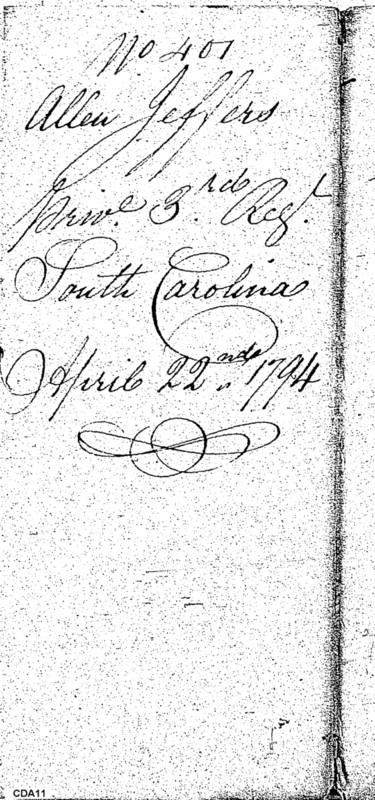 No 401
Allen Jeffers
Priv.e 3.rd Reg.t
South Carolina
April 22nd 1794
CDA11